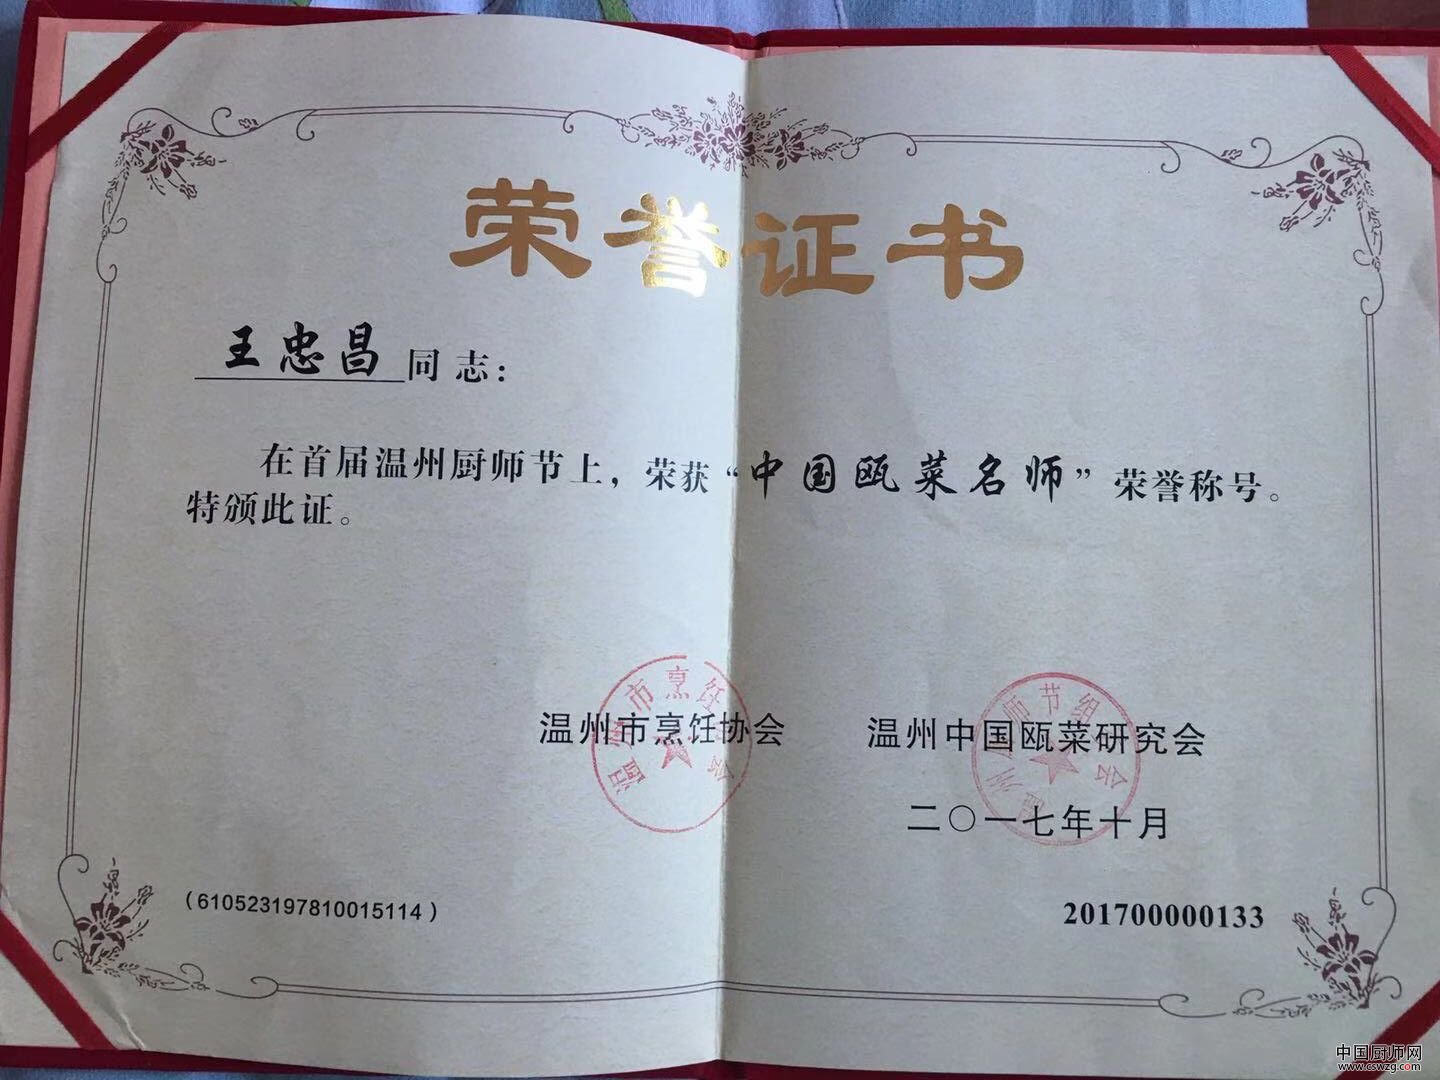 荣誉证书
王忠昌同志：
在首届温州厨师节上，荣获“中国瓯菜名师”荣誉称号。
特颁此证。
温州市烹饪协会
温州中国瓯菜研究会
二〇一七年十月
(610523197810015114)
201700000133
中国厨师网
www.cswzg.com